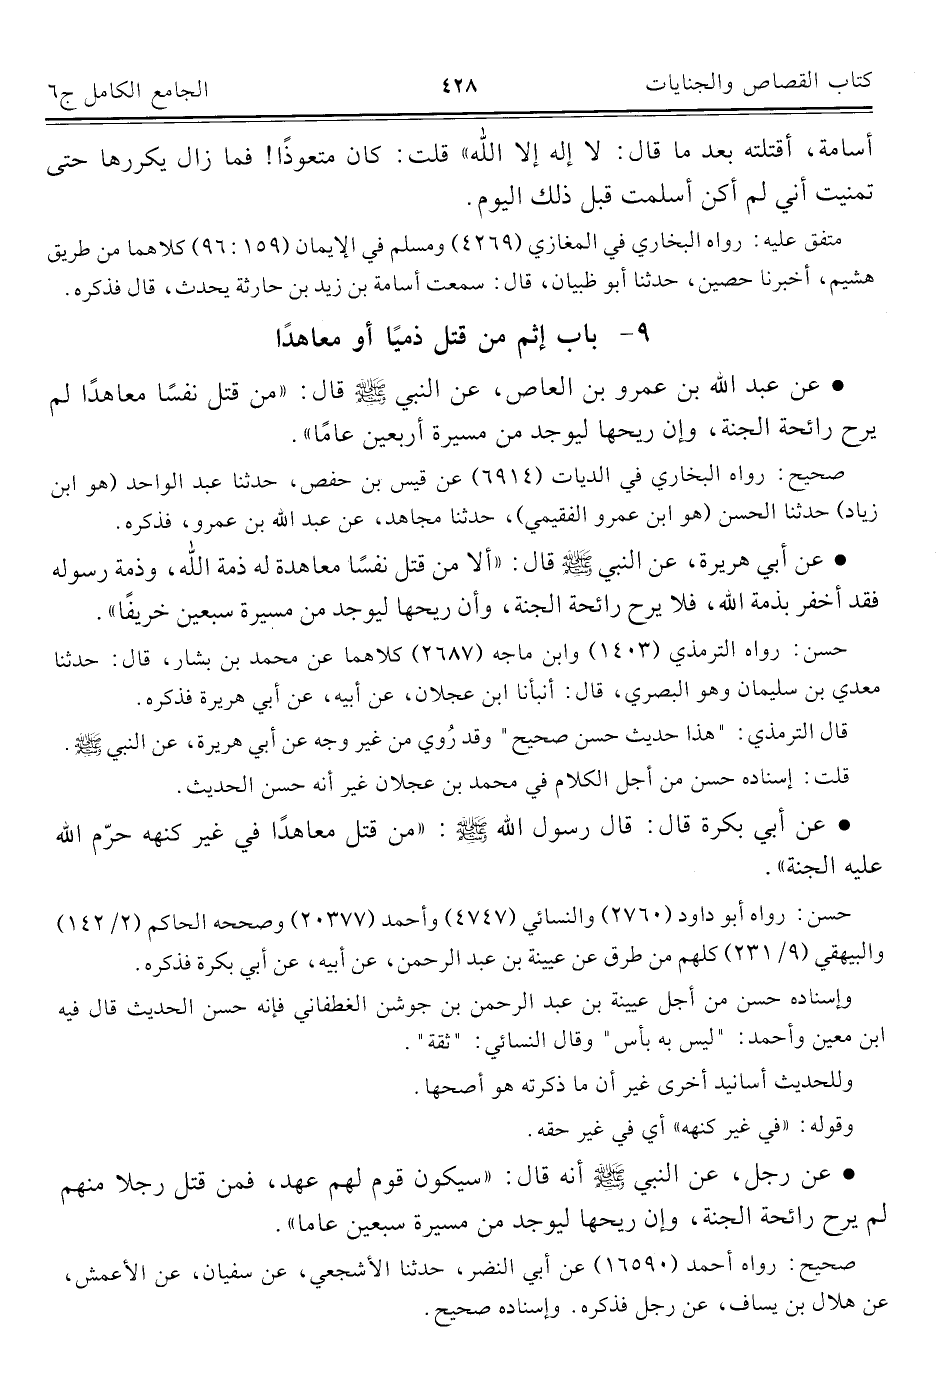 كتاب القصاص والجنايات ٤٢٨ الجامع الكامل ج٦
أسامة، أقتلته بعد ما قال: لا إله إلا الله» قلت: كان متعوذًا! فما زال يكررها حتى
تمنيت أني لم أكن أسلمت قبل ذلك اليوم.
متفق عليه: رواه البخاري في المغازي (٤٢٦٩) ومسلم في الإيمان (١٥٩: ٩٦) كلاهما من طريق
هشيم، أخبرنا حصين، حدثنا أبو ظبيان، قال: سمعت أسامة بن زيد بن حارثة يحدث، قال فذكره.
٩- باب إثم من قتل ذميًا أو معاهدًا
• عن عبد الله بن عمرو بن العاص، عن النبي ﷺ قال: «من قتل نفسًا معاهدًا لم
يرح رائحة الجنة، وإن ريحها ليوجد من مسيرة أربعين عامًا».
صحيح: رواه البخاري في الديات (٦٩١٤) عن قيس بن حفص، حدثنا عبد الواحد (هو ابن
زياد) حدثنا الحسن (هو ابن عمرو الفقيمي)، حدثنا مجاهد، عن عبد الله بن عمرو، فذكره.
• عن أبي هريرة، عن النبي ﷺ قال: «ألا من قتل نفسًا معاهدة له ذمة الله، وذمة رسوله
فقد أخفر بذمة الله، فلا يرح رائحة الجنة، وأن ريحها ليوجد من مسيرة سبعين خريفًا».
حسن: رواه الترمذي (١٤٠٣) وابن ماجه (٢٦٨٧) كلاهما عن محمد بن بشار، قال: حدثنا
معدي بن سليمان وهو البصري، قال: أنبأنا ابن عجلان، عن أبيه، عن أبي هريرة فذكره.
قال الترمذي: "هذا حديث حسن صحيح" وقد رُوي من غير وجه عن أبي هريرة، عن النبي ﷺ.
قلت: إسناده حسن من أجل الكلام في محمد بن عجلان غير أنه حسن الحديث.
• عن أبي بكرة قال: قال رسول الله ﷺ: «من قتل معاهدًا في غير كنهه حرّم الله
عليه الجنة».
حسن: رواه أبو داود (٢٧٦٠) والنسائي (٤٧٤٧) وأحمد (٢٠٣٧٧) وصححه الحاكم (٢/ ١٤٢)
والبيهقي (٩/ ٢٣١) كلهم من طرق عن عيينة بن عبد الرحمن، عن أبيه، عن أبي بكرة فذكره.
وإسناده حسن من أجل عيينة بن عبد الرحمن بن جوشن الغطفاني فإنه حسن الحديث قال فيه
ابن معين وأحمد: "ليس به بأس" وقال النسائي: "ثقة".
وللحديث أسانيد أخرى غير أن ما ذكرته هو أصحها.
وقوله: «في غير كنهه» أي في غير حقه.
• عن رجل، عن النبي ﷺ أنه قال: «سيكون قوم لهم عهد، فمن قتل رجلا منهم
لم يرح رائحة الجنة، وإن ريحها ليوجد من مسيرة سبعين عاما».
صحيح: رواه أحمد (١٦٥٩٠) عن أبي النضر، حدثنا الأشجعي، عن سفيان، عن الأعمش،
عن هلال بن يساف، عن رجل فذكره. وإسناده صحيح.